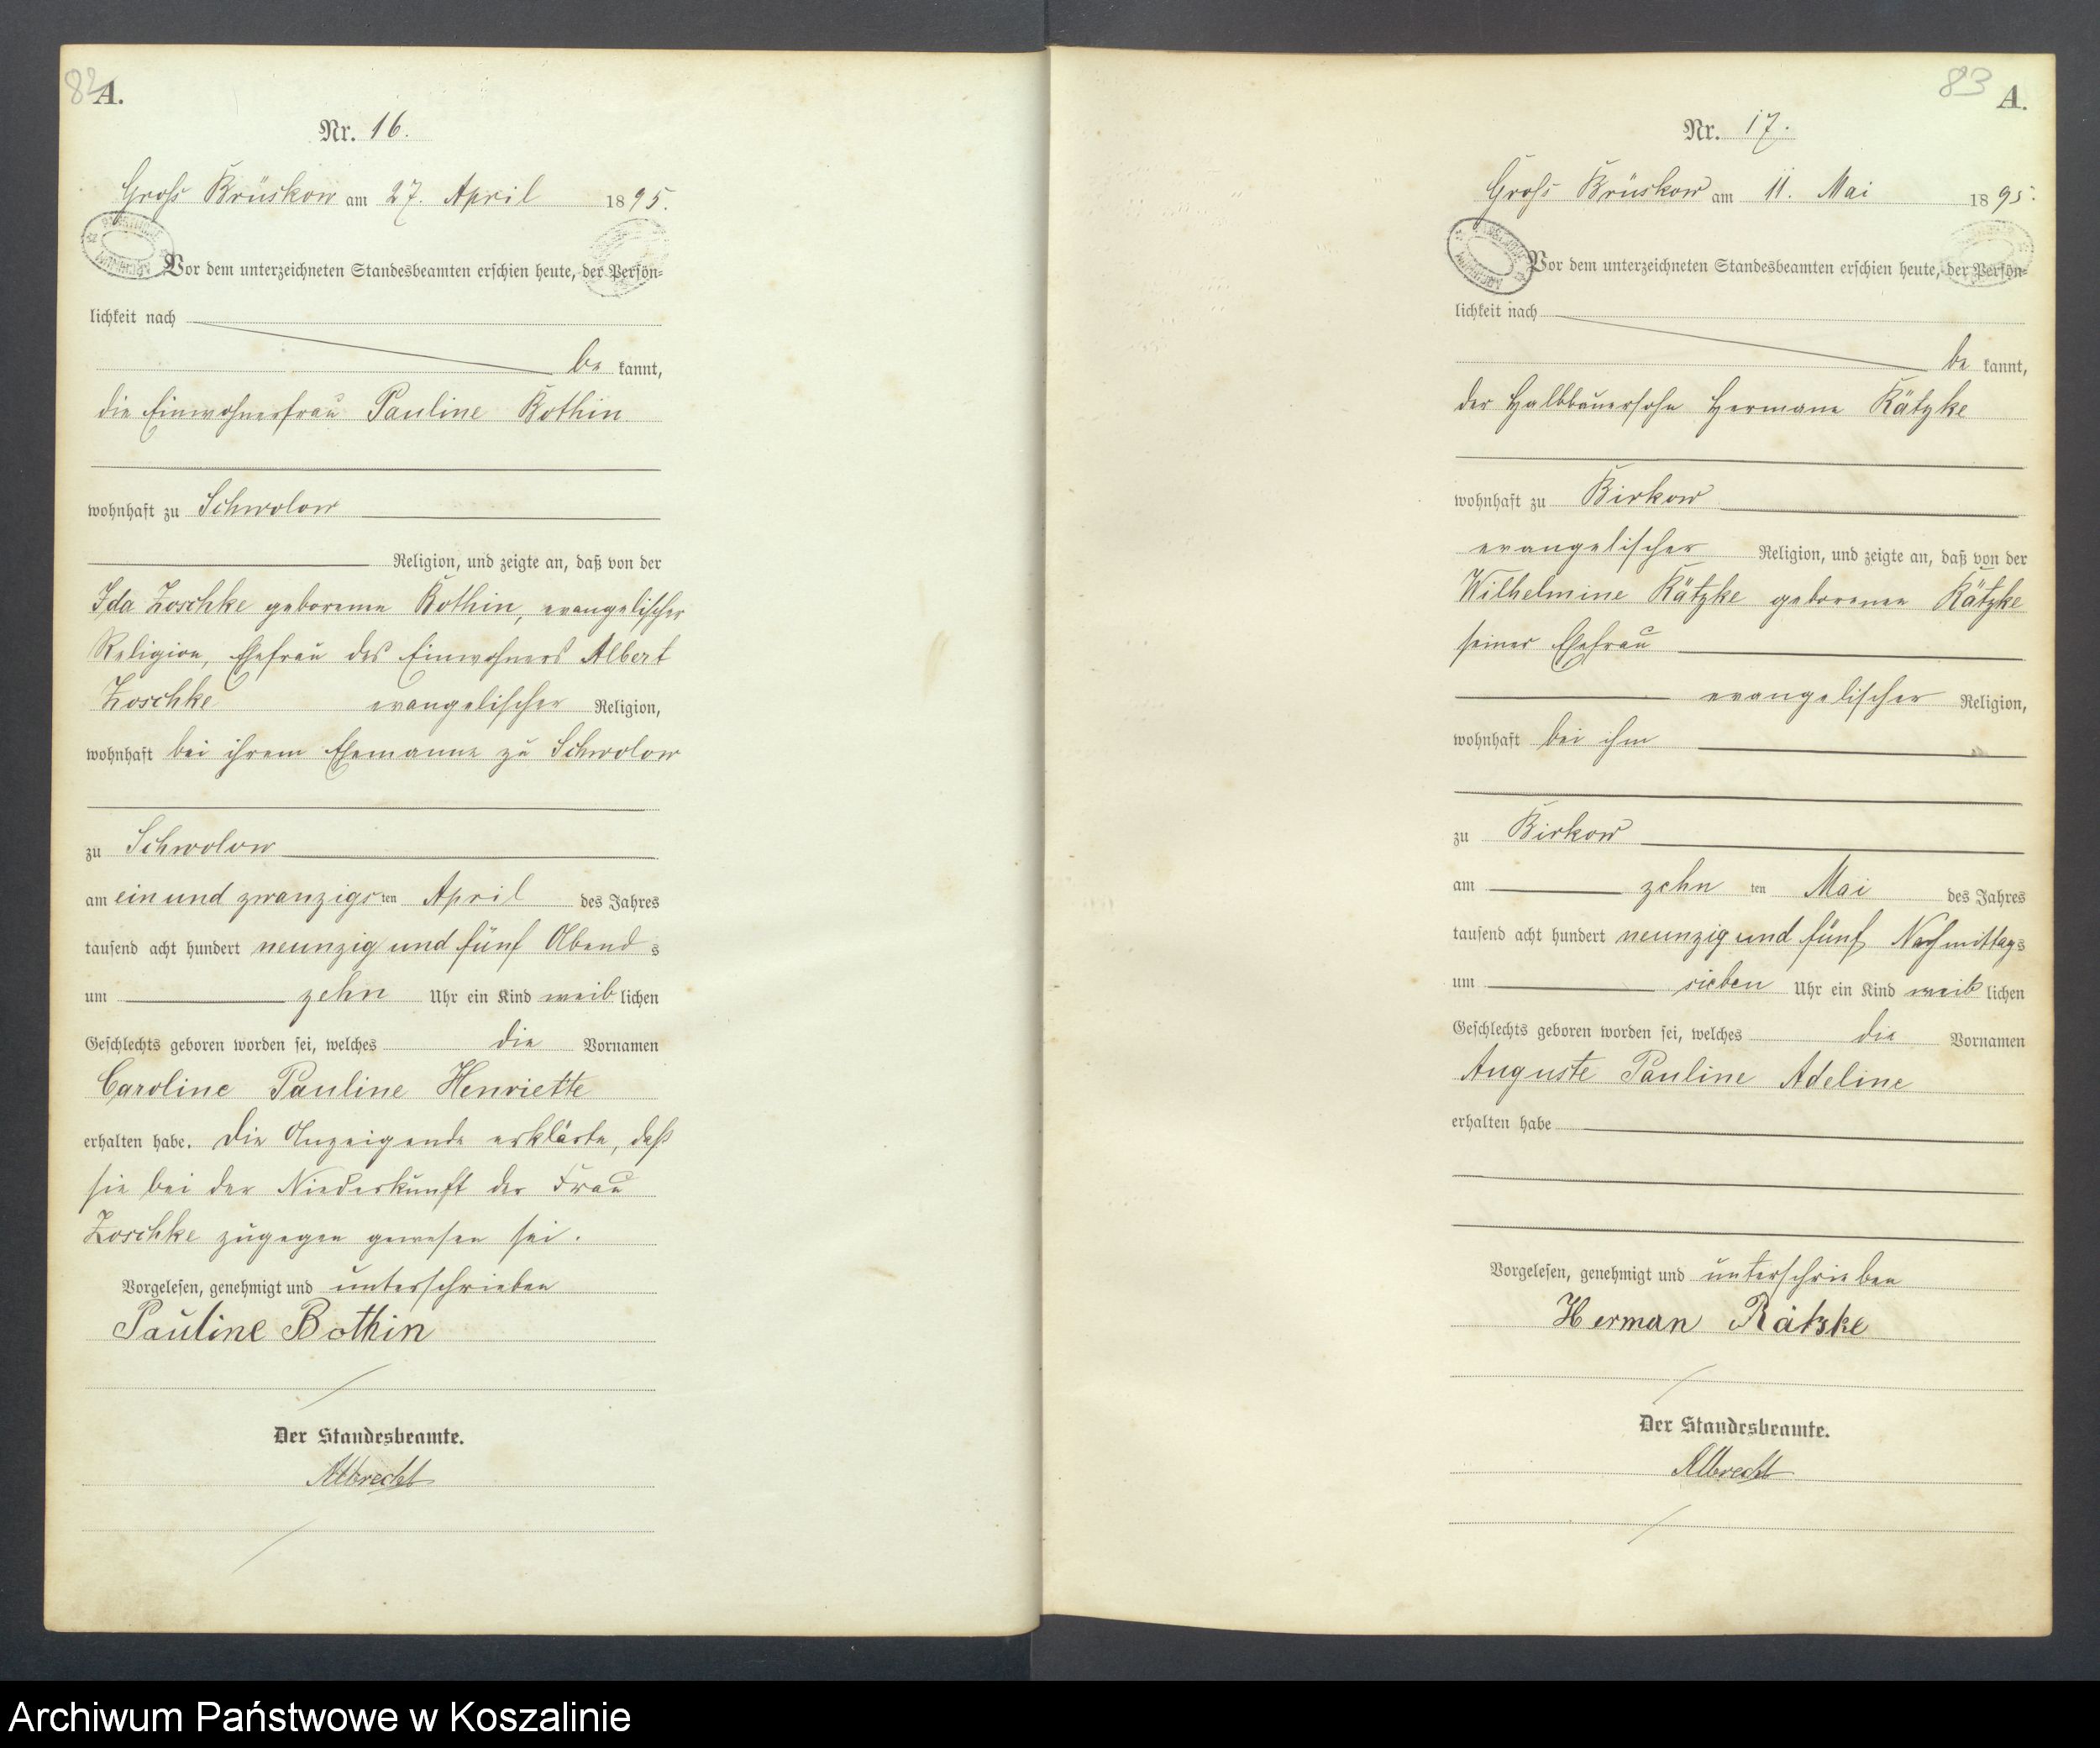 82
A.
Nr. 16.
Groß Brüskow am 27. April 1895.
Vor dem unterzeichneten Standesbeamten erschien heute, der Persön-
lichkeit nach
be kannt,
die Einwohnerfrau Pauline Bothin
wohnhaft zu Schwolow
Religion, und zeigte an, daß von der
Ida Zoschke geborene Bothin, evangelischer
Religion, Ehefrau des Einwohners Albert
Zoschke evangelischer Religion,
wohnhaft bei ihrem Ehemanne zu Schwolow
zu Schwolow
am ein und zwanzigsten April des Jahres
tausend acht hundert neunzig und fünf Abends
um zehn Uhr ein Kind weiblichen
Geschlechts geboren worden sei, welches die Vornamen
Caroline Pauline Henriette
erhalten habe. Die Anzeigende erklärte, daß
sie bei der Niederkunft der Frau
Zoschke zugegen gewesen sei.
Vorgelesen, genehmigt und unterschrieben
Pauline Bothin
Der Standesbeamte.
Albrecht
83
A.
Nr. 17.
Groß Brüskow am 11. Mai 1895.
Vor dem unterzeichneten Standesbeamten erschien heute, der Persön-
lichkeit nach
be kannt,
der Halbbauersohn Hermann Rätzke
wohnhaft zu Birkow
evangelischer Religion, und zeigte an, daß von der
Wilhelmine Rätzke geborenen Rätzke
seiner Ehefrau
evangelischer Religion,
wohnhaft bei ihm
zu Birkow
am zehn ten Mai des Jahres
tausend acht hundert neunzig und fünf Nachmittags
um sieben Uhr ein Kind weiblichen
Geschlechts geboren worden sei, welches die Vornamen
Auguste Pauline Adeline
erhalten habe
Vorgelesen, genehmigt und unterschrieben
Herman Rätzke
Der Standesbeamte.
Albrecht
Archiwum Państwowe w Koszalinie